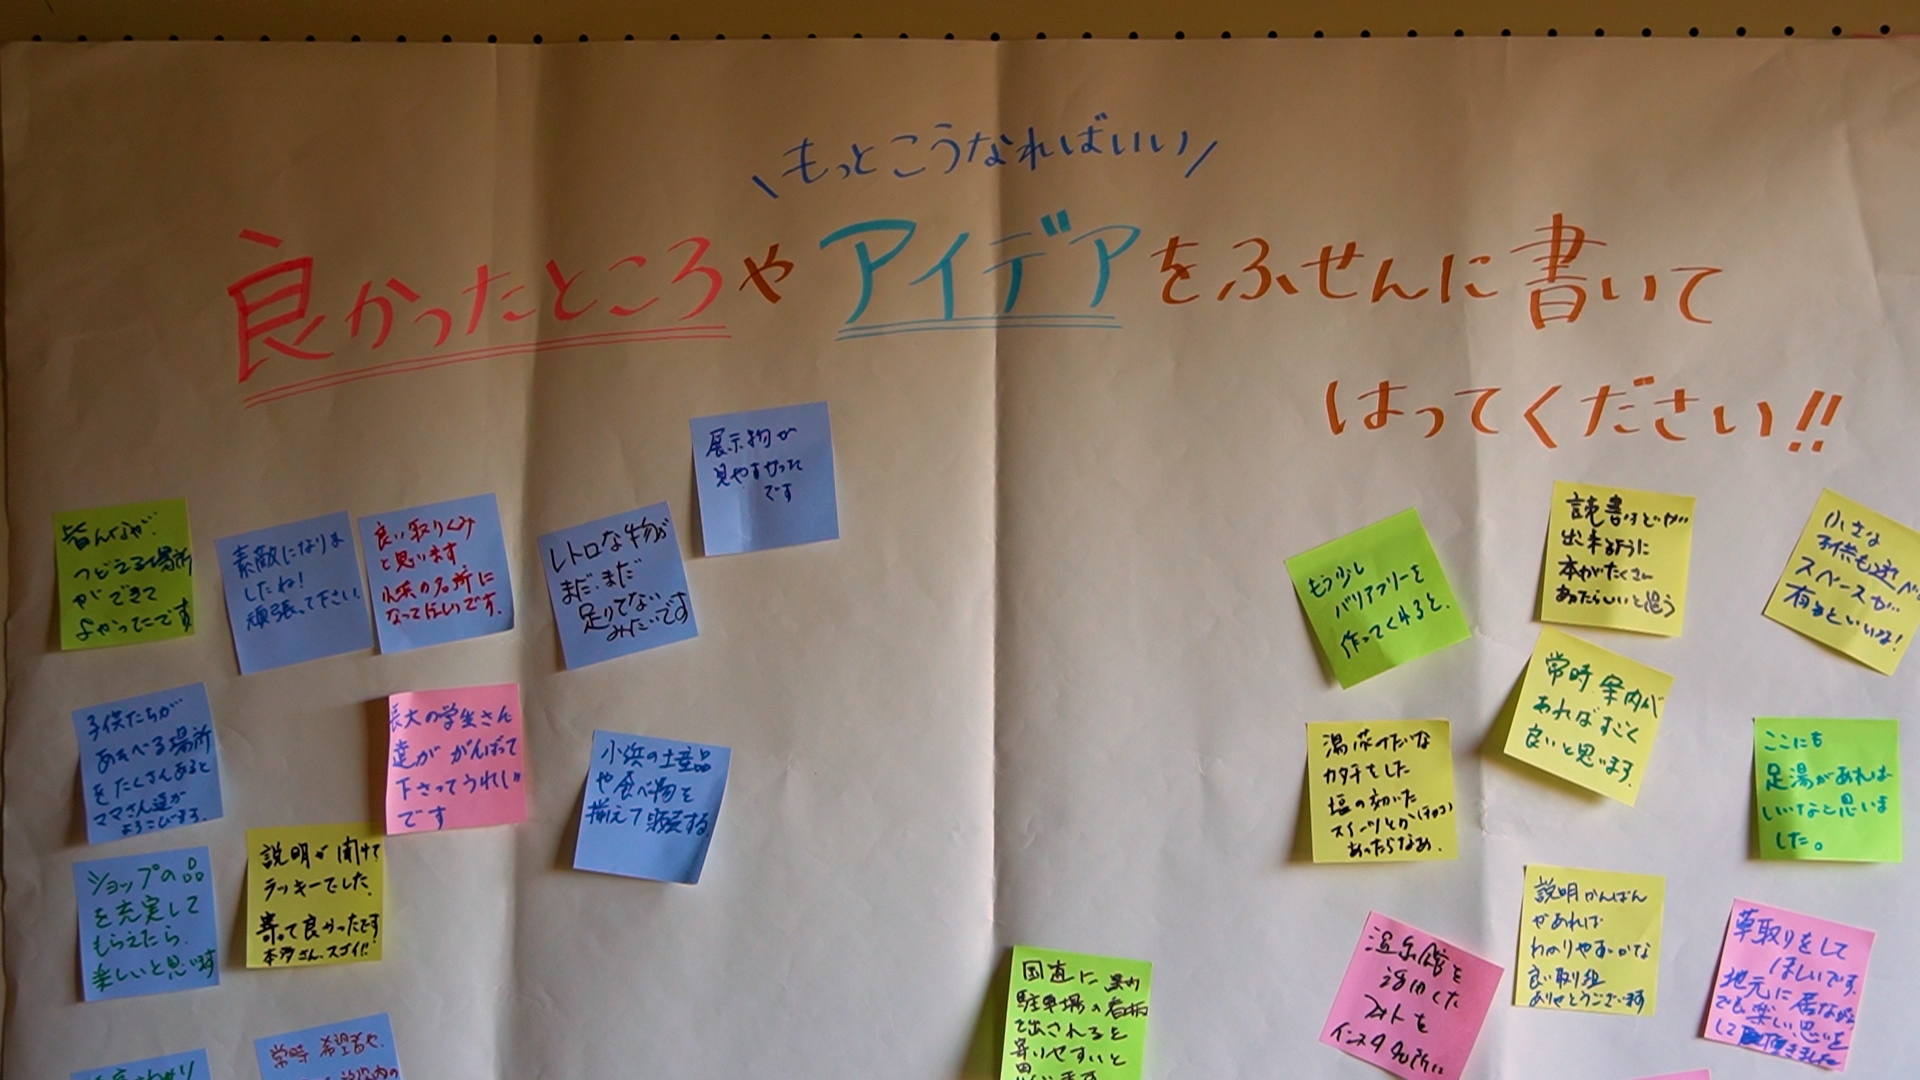 もっとこうなればいい
良かったところやアイデアをふせんに書いて
はってください!!
展示物が
見やすかった
です
皆んなが
つどえる場所
ができて
よかったです
素敵になりま
したね!
頑張って下さい
良い取りくみ
と思います
小浜の名所に
なってほしいです。
レトロな物が
まだまだ
足りてない
みたいです
もう少し
バリアフリーを
作ってくれると、
読書などが
出来るように
本がたくさん
あったらいいと思う
小さな
子供も
スペースが
有るといいな!
子供たちが
あそべる場所
をたくさんあると
ママさん達が
よろこびます。
長大の学生さん
達が がんばって
下さってうれしい
です
小浜の土産品
や食べ物を
揃えて
常時案内人が
あればすごく
良いと思います。
みたいな
カタチをした
塩の効いた
スイーツとか(チョコ)
あったらなぁ.
ここにも
足湯があれば
いいなと思いま
した。
ショップの品
を充実して
もらえたら
楽しいと思います
説明が聞けて
ラッキーでした。
寄って良かったです
本多さん、スゴイ!!
説明かんばん
があれば
わかりやすいかな
良い取組
ありがとうございます
草取りをして
ほしいです。
地元に居ながら
でも楽しい思いを
して頂きました
国道に
駐車場の看板
を出されると
寄りやすいと
思います
を
活用した
フォトを
インスタ
常時 希望者や、